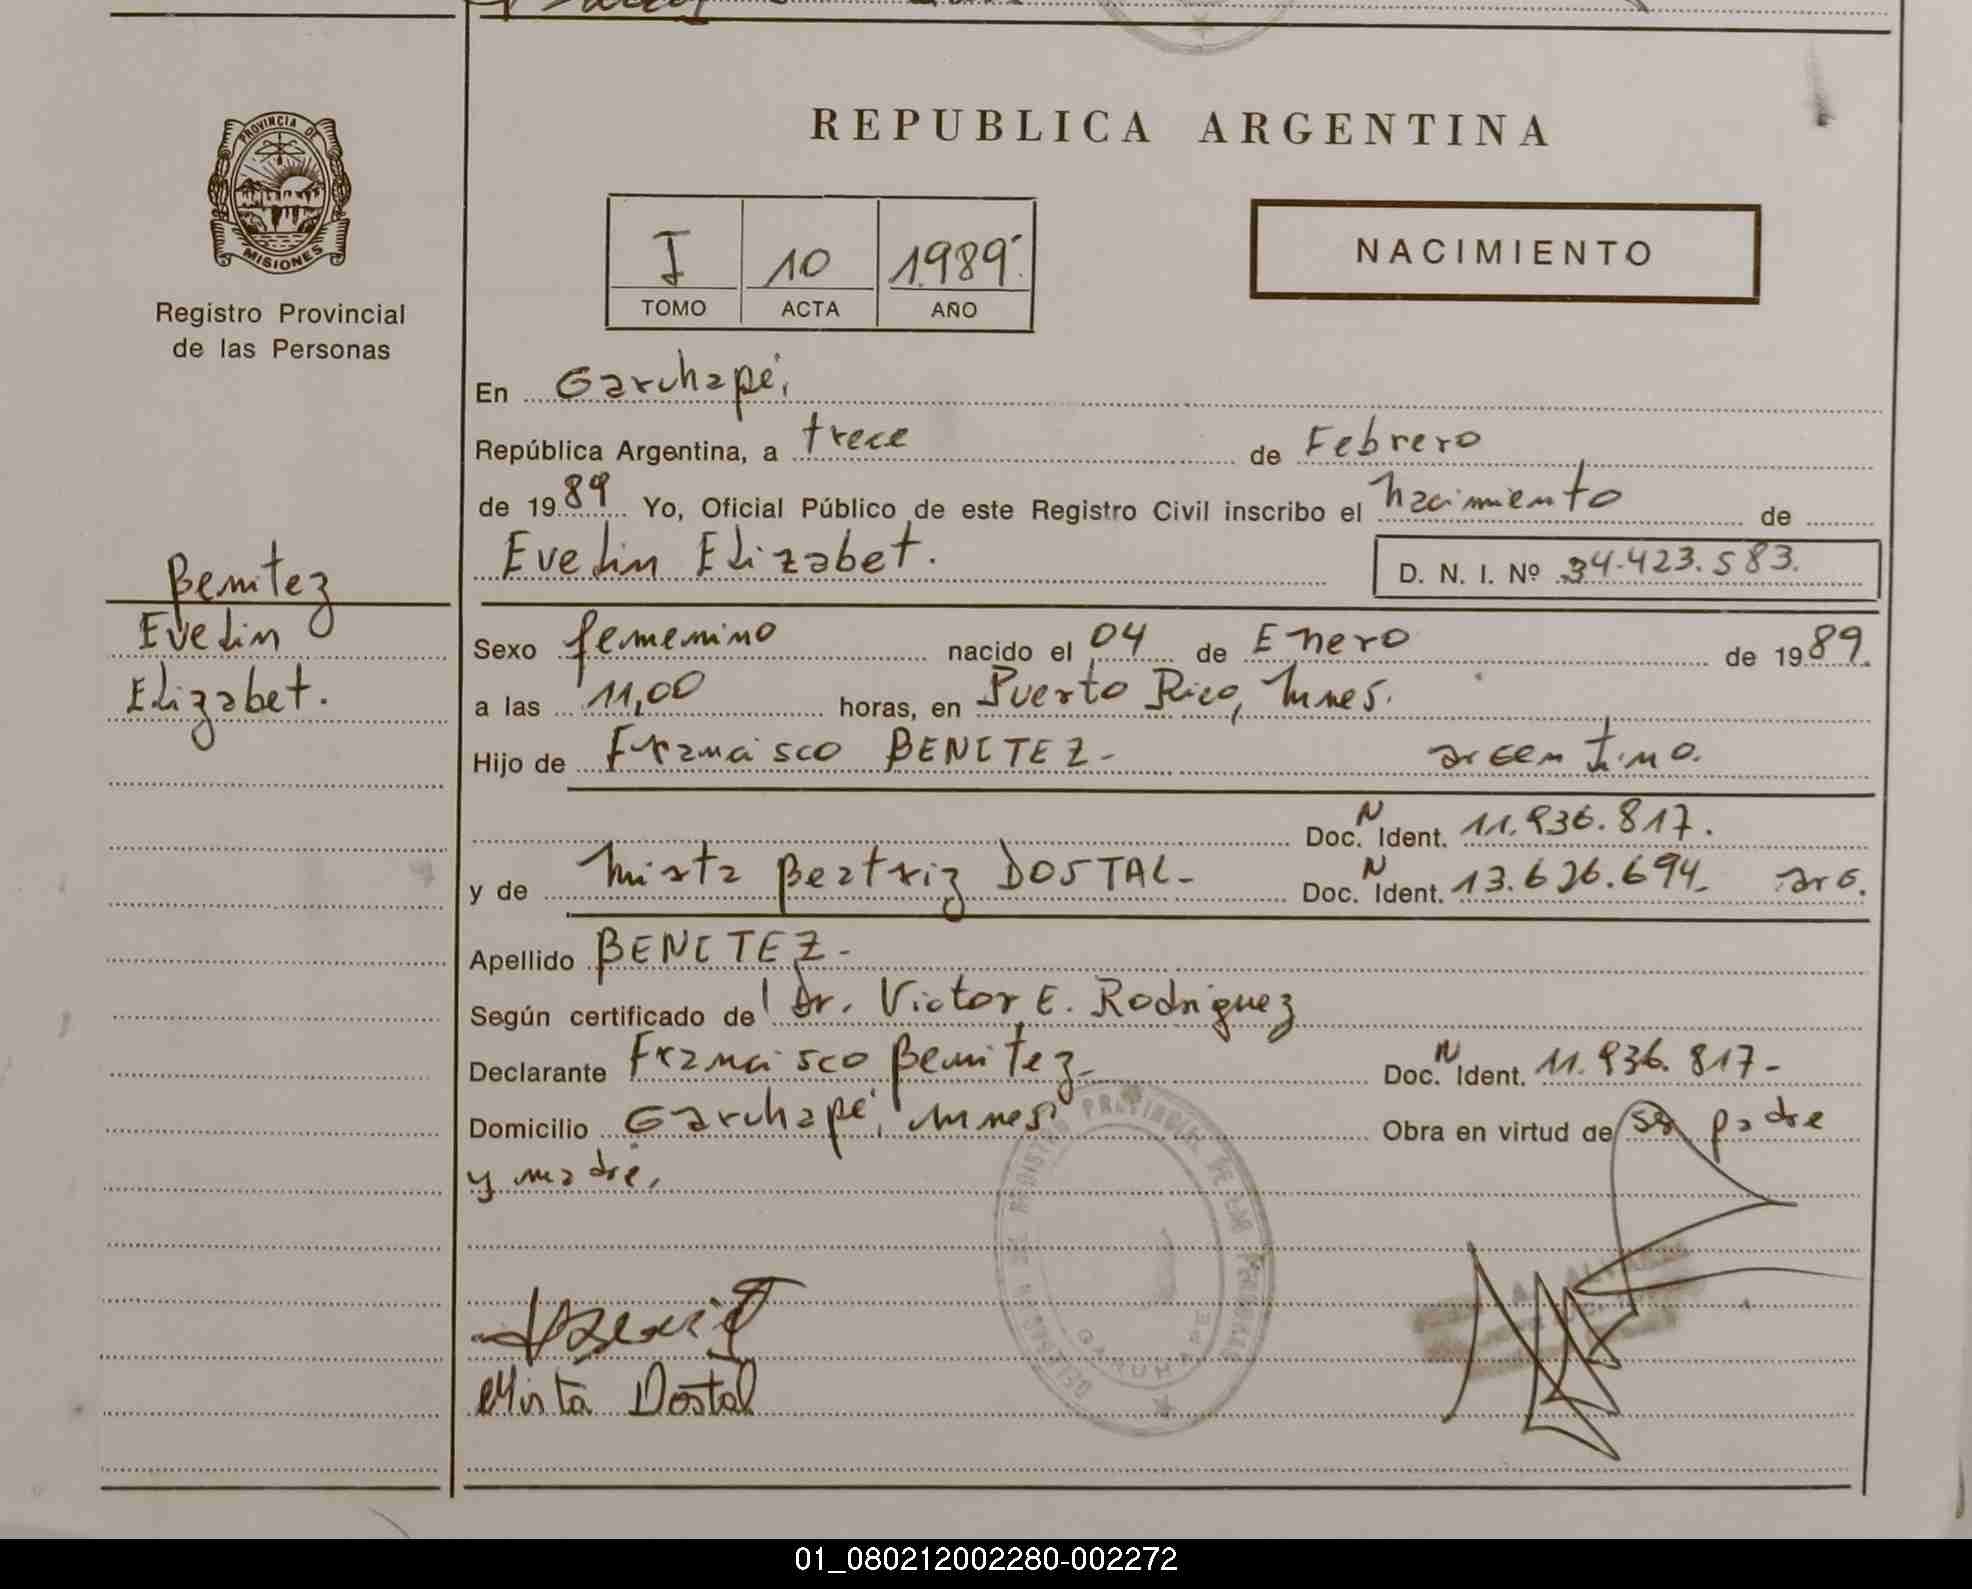 PROVINCIA DE
MISIONES
Registro Provincial
de las Personas
Benitez
Evelin
Elizabet.
REPUBLICA ARGENTINA
I 10 1989
TOMO ACTA AÑO
NACIMIENTO
En Garuhapé,
República Argentina, a trece de Febrero
de 1989 Yo, Oficial Público de este Registro Civil inscribo el nacimiento de
Evelin Elizabet. D. N. I. Nº 34.423.583.
Sexo femenino nacido el 04 de Enero de 1989.
a las 11,00 horas, en Puerto Rico, Mnes.
Hijo de Francisco BENITEZ- argentino.
Doc. N Ident. 11.936.817.
y de Mirta Beatriz DOSTAL- Doc. N Ident. 13.626.694- arg.
Apellido BENITEZ-
Según certificado de Dr. Victor E. Rodriguez
Declarante Francisco Benitez- Doc. N Ident. 11.936.817-
Domicilio Garuhapé, Mnes Obra en virtud de ser padre
y madre,
GARUHAPE
Mirta Dostal
01_080212002280-002272